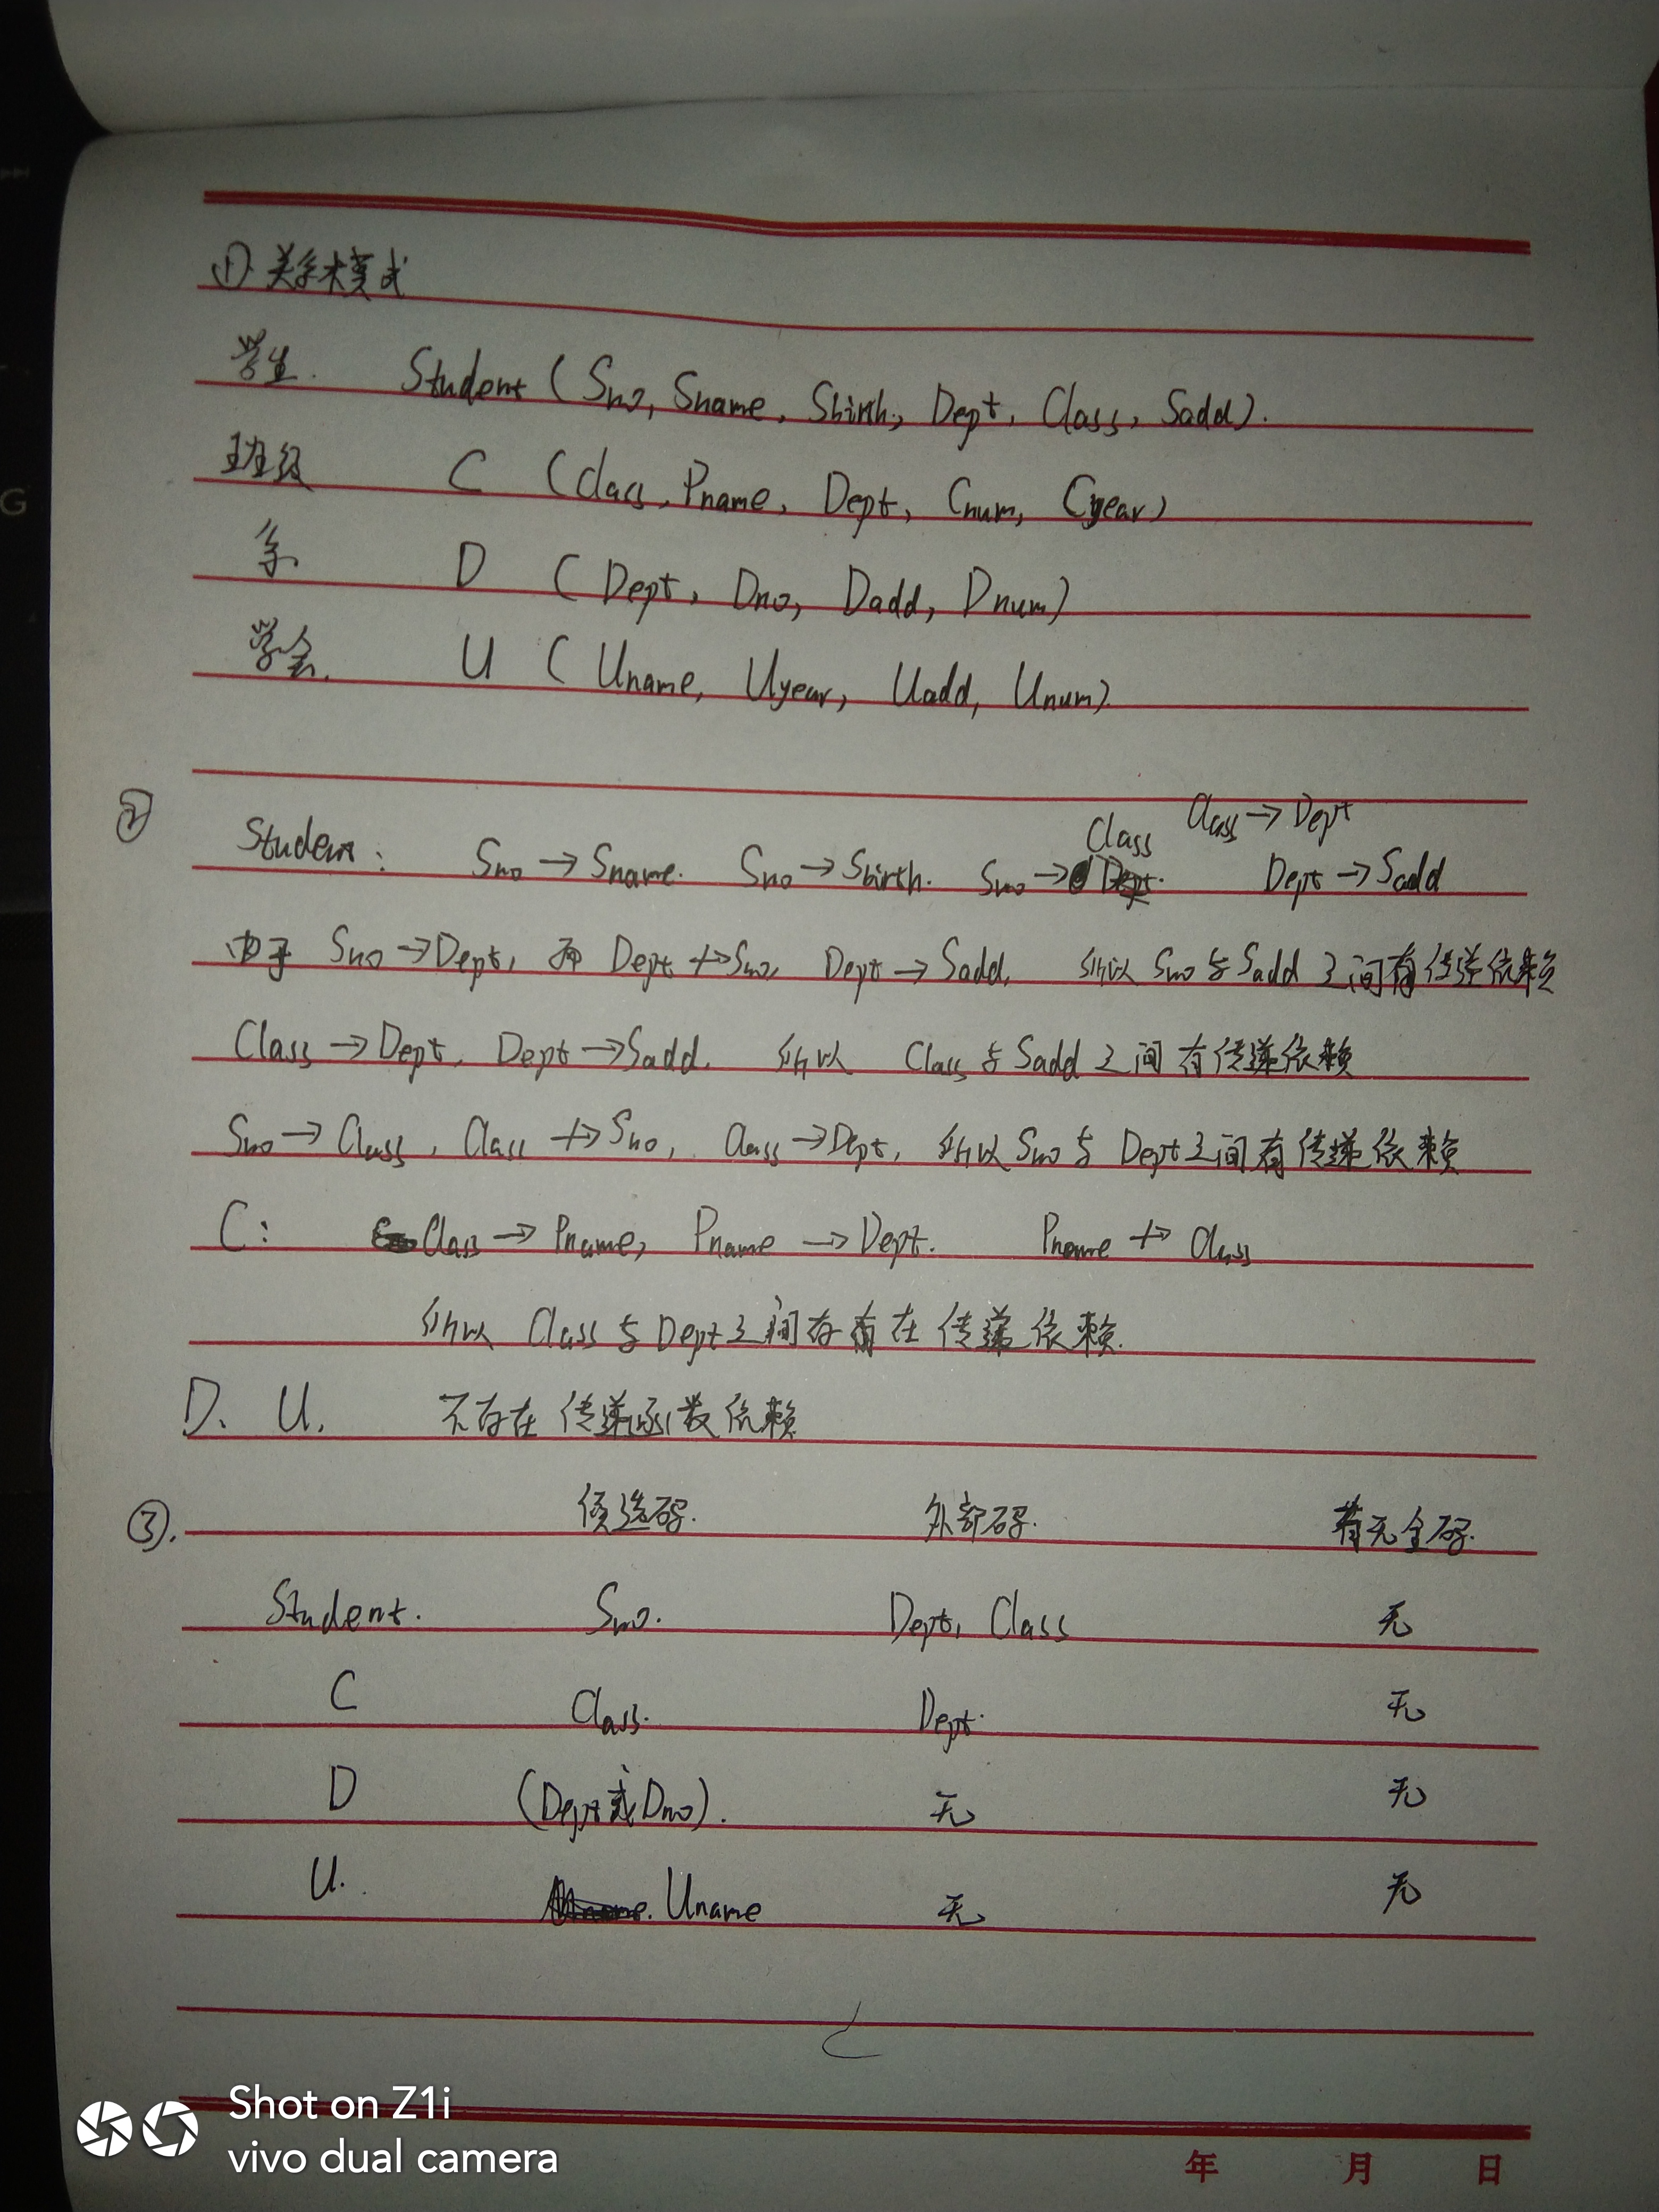 ① 关系模式
学生. Student (Sno, Sname, Sbirth, Dept, Class, Sadd).
班级 C (Class, Pname, Dept, Cnum, Cyear)
系 D (Dept, Dno, Dadd, Dnum)
学会. U (Uname, Uyear, Uadd, Unum).
② Student: Sno → Sname. Sno → Sbirth. Sno → Class Class → Dept Dept → Sadd
由于 Sno → Dept, 而 Dept ↛ Sno, Dept → Sadd, 所以 Sno 与 Sadd 之间有传递依赖
Class → Dept, Dept → Sadd. 所以 Class 与 Sadd 之间有传递依赖
Sno → Class, Class ↛ Sno, Class → Dept, 所以 Sno 与 Dept 之间有传递依赖
C: Class → Pname, Pname → Dept. Pname ↛ Class
所以 Class 与 Dept 之间存在传递依赖.
D. U. 不存在传递函数依赖
③. 候选码. 外部码. 有无全码.
Student. Sno. Dept, Class 无
C Class. Dept. 无
D (Dept或Dno). 无 无
U. Uname 无 无
Shot on Z1i
vivo dual camera
年 月 日
G